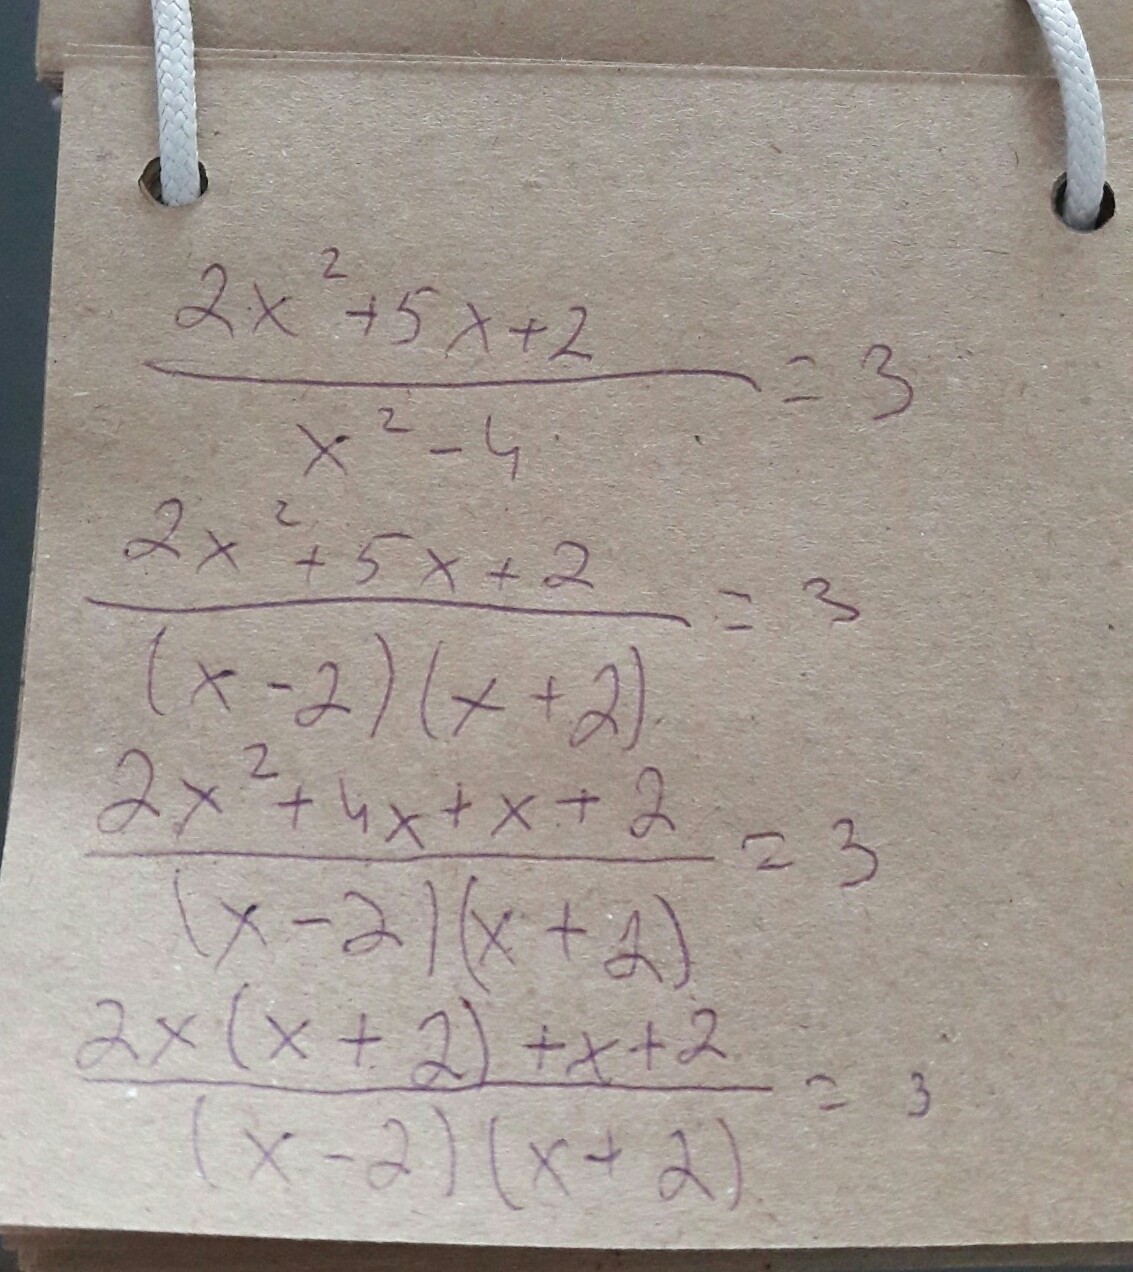 2x²+5x+2
/ x²-4 = 3
2x²+5x+2
/ (x-2)(x+2) = 3
2x²+4x+x+2
/ (x-2)(x+2) = 3
2x(x+2)+x+2
/ (x-2)(x+2) = 3